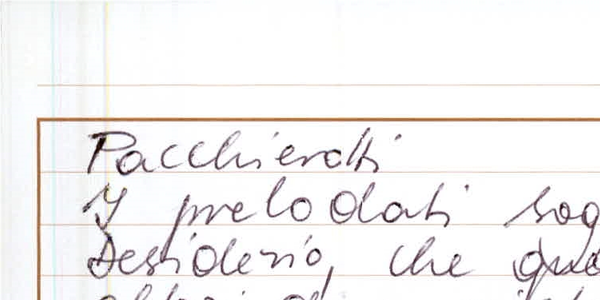 Pacchierotti
I prelodati sog
Desiderio, che